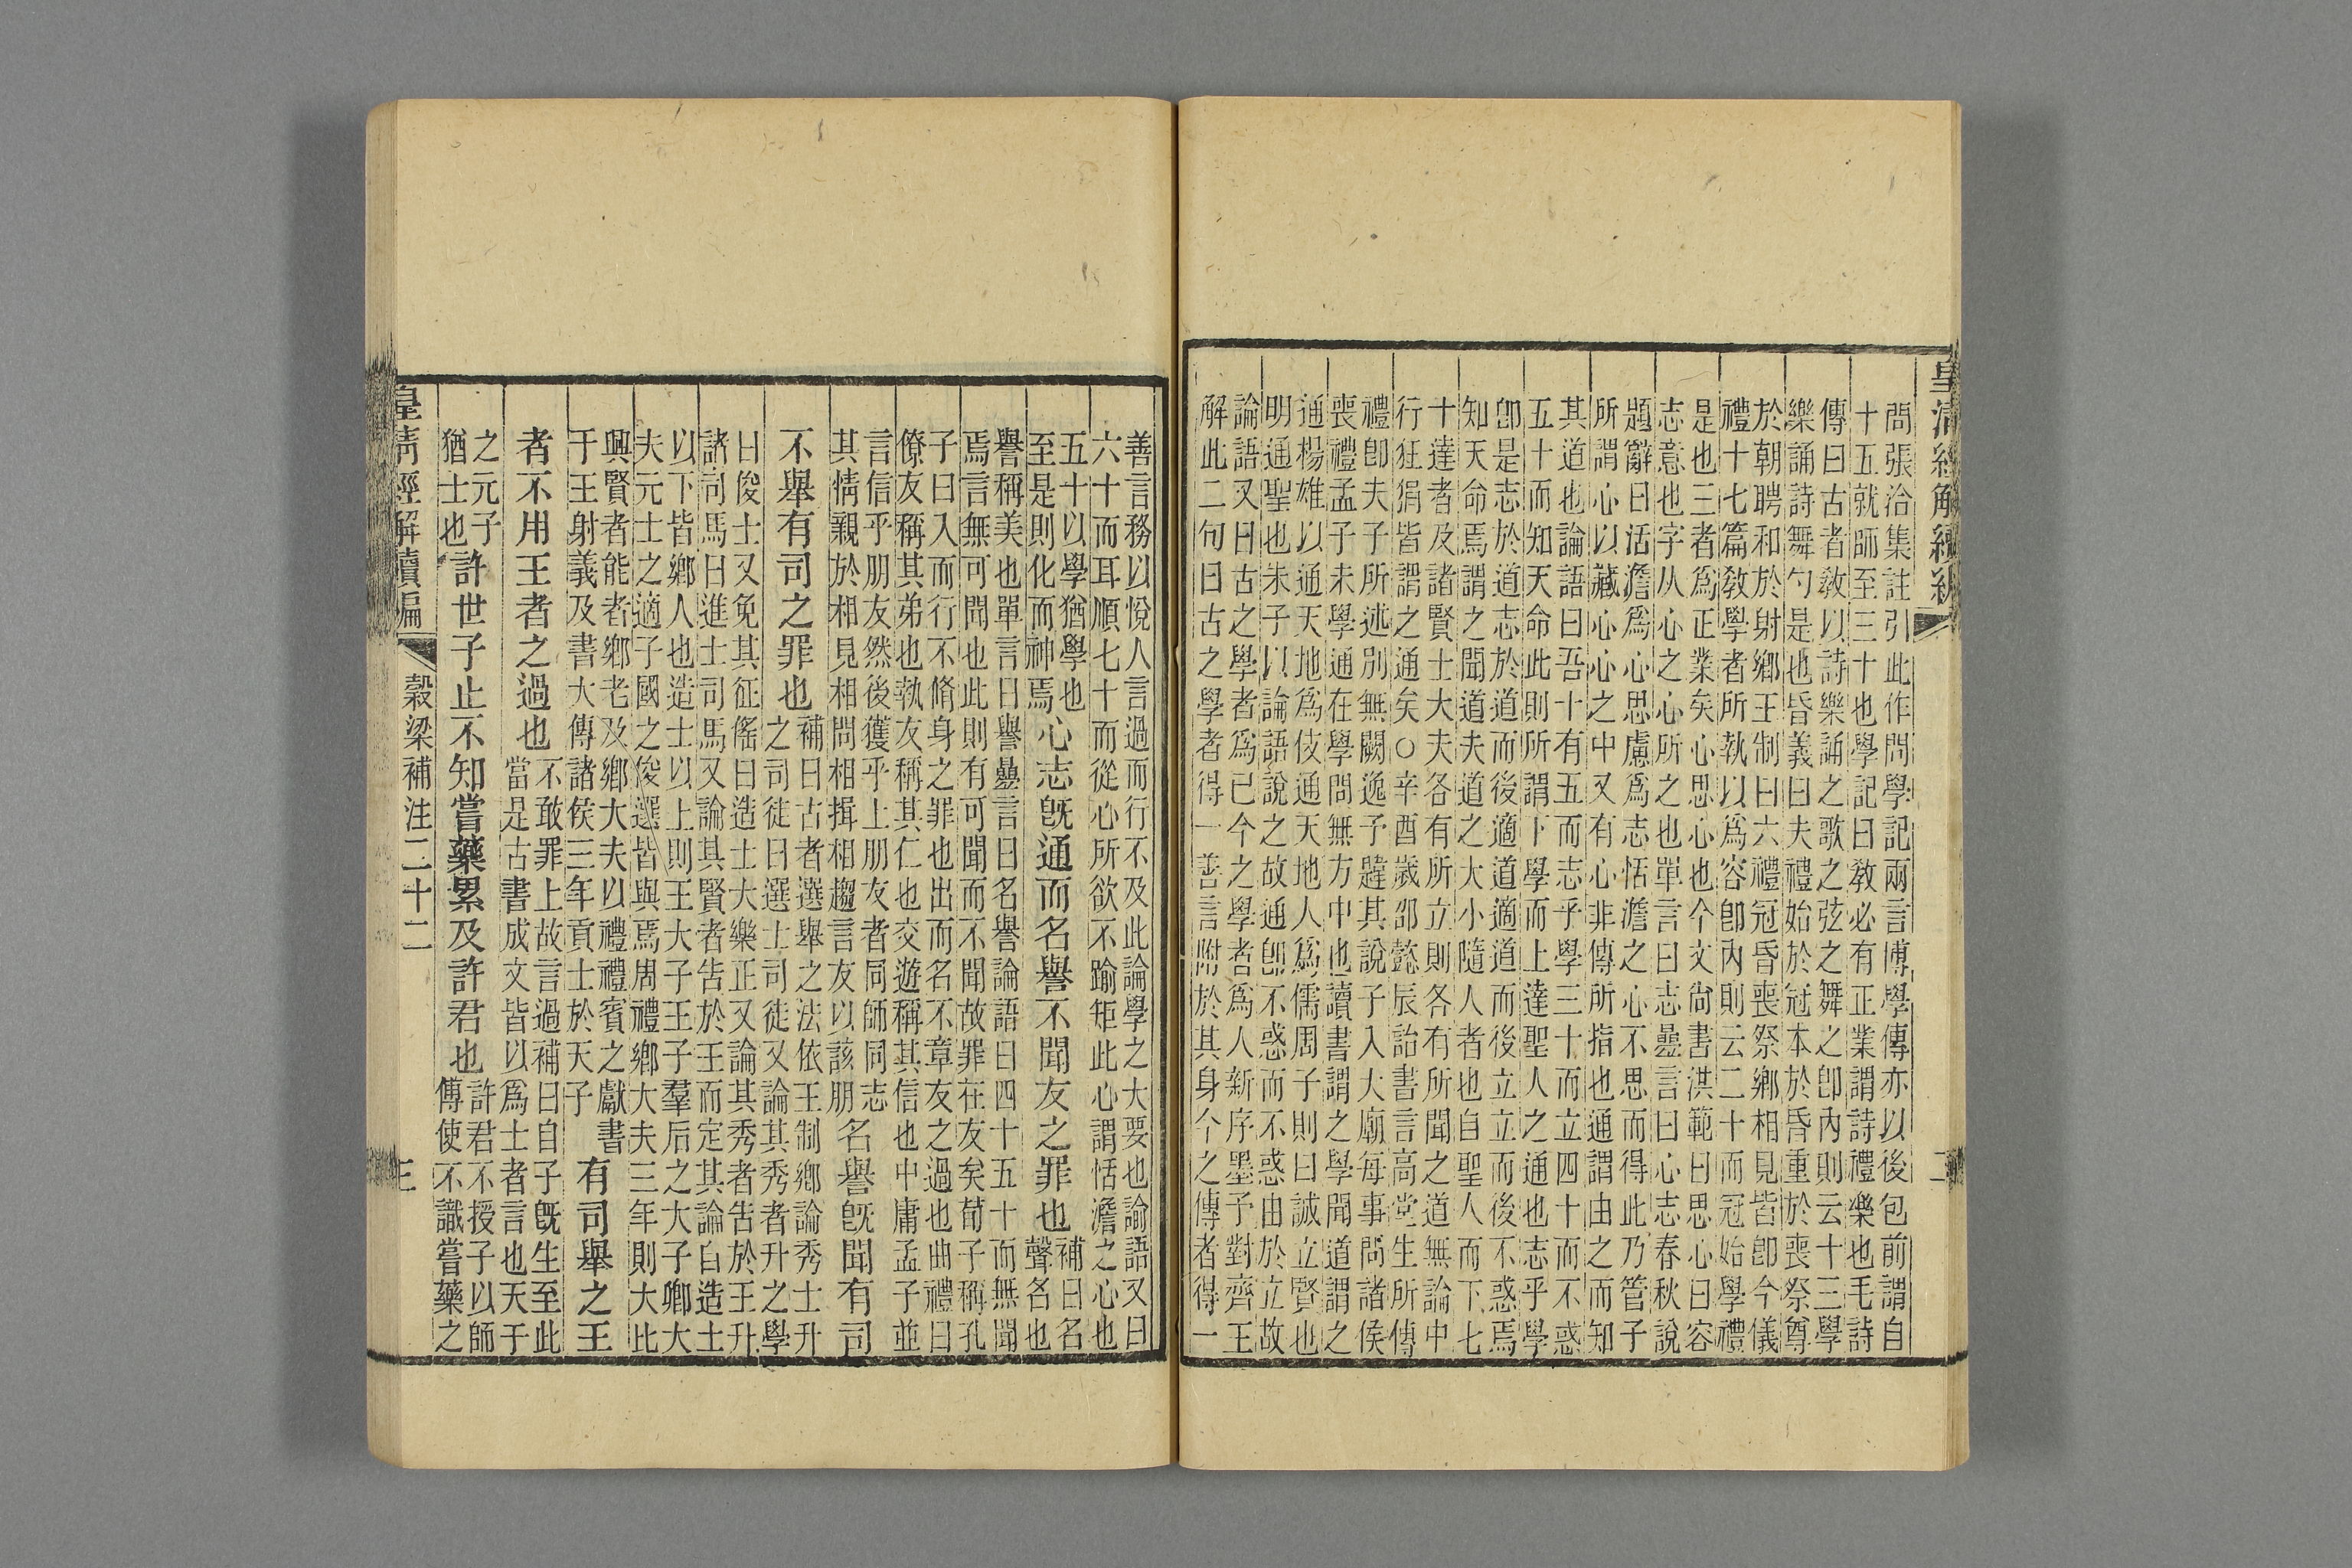 皇清經解續編
二
問張洽集註引此作問學記兩言傅學傳亦以後包前謂自
十五就師至三十也學記曰教必有正業謂詩禮樂也毛詩
傳曰古者教以詩樂誦之歌之弦之舞之卽內則云十三學
樂誦詩舞勺是也昏義曰夫禮始於冠本於昏重於喪祭尊
於朝聘和於射鄉王制曰六禮冠昏喪祭鄉相見皆卽今儀
禮十七篇敎學者所執以爲容卽內則云二十而冠始學禮
是也三者爲正業矣心思心也今文尙書洪範曰思心曰容
志意也字从心之心所之也單言曰志疊言曰心志春秋說
題辭曰活澹爲心思慮爲志恬澹之心不思而得此乃管子
所謂心以藏心心之中又有心非傳所指也通謂由之而知
其道也論語曰吾十有五而志乎學三十而立四十而不惑
五十而知天命此則所謂下學而上達聖人之通也志乎學
卽是志於道志於道而後適道適道而後立立而後不惑焉
知天命焉謂之聞道夫道之大小隨人者也自聖人而下七
十達者及諸賢士大夫各有所立則各有所聞之道無論中
行狂狷皆謂之通矣○辛酉歲邵懿辰詒書言高堂生所傳
禮卽夫子所述別無闕逸予韙其說子入大廟每事問諸侯
喪禮孟子未學通在學問無方中也讀書謂之學聞道謂之
通楊雄以通天地爲伎通天地人爲儒周子則曰誠立賢也
明通聖也朱子以論語說之故通卽不惑而不惑由於立故
論語又曰古之學者爲已今之學者爲人新序墨子對齊王
解此二句曰古之學者得一善言附於其身今之傳者得一
善言務以悅人言過而行不及此論學之大要也論語又曰
六十而耳順七十而從心所欲不踰矩此心謂恬澹之心也
五十以學猶學也
至是則化而神焉心志旣通而名譽不聞友之罪也補曰名
聲名也
譽稱美也單言曰譽疊言曰名譽論語曰四十五十而無聞
焉言無可聞也此則有可聞而不聞故罪在友矣荀子稱孔
子曰入而行不脩身之罪也出而名不章友之過也曲禮曰
僚友稱其弟也執友稱其仁也交遊稱其信也中庸孟子並
言信乎朋友然後獲乎上朋友者同師同志
其情親於相見相問相揖相趨言友以該朋名譽旣聞有司
不舉有司之罪也補曰古者選舉之法依王制鄉論秀士升
之司徒曰選士司徒又論其秀者升之學
曰俊士又免其征傜曰造士大樂正又論其秀者告於王升
諸司馬曰進士司馬又論其賢者告於王而定其論自造士
以下皆鄉人也造士以上則王大子王子羣后之大子卿大
夫元士之適子國之俊選皆與焉周禮鄉大夫三年則大比
興賢者能者鄉老及鄉大夫以禮禮賓之獻書
于王射義及書大傳諸侯三年貢士於天子有司舉之王
者不用王者之過也不敢罪上故言過補曰自子旣生至此
當是古書成文皆以爲士者言也天于
之元子
猶士也許世子止不知嘗藥累及許君也許君不授子以師
傅使不識嘗藥之
皇清經解續編
穀梁補注二十二
三